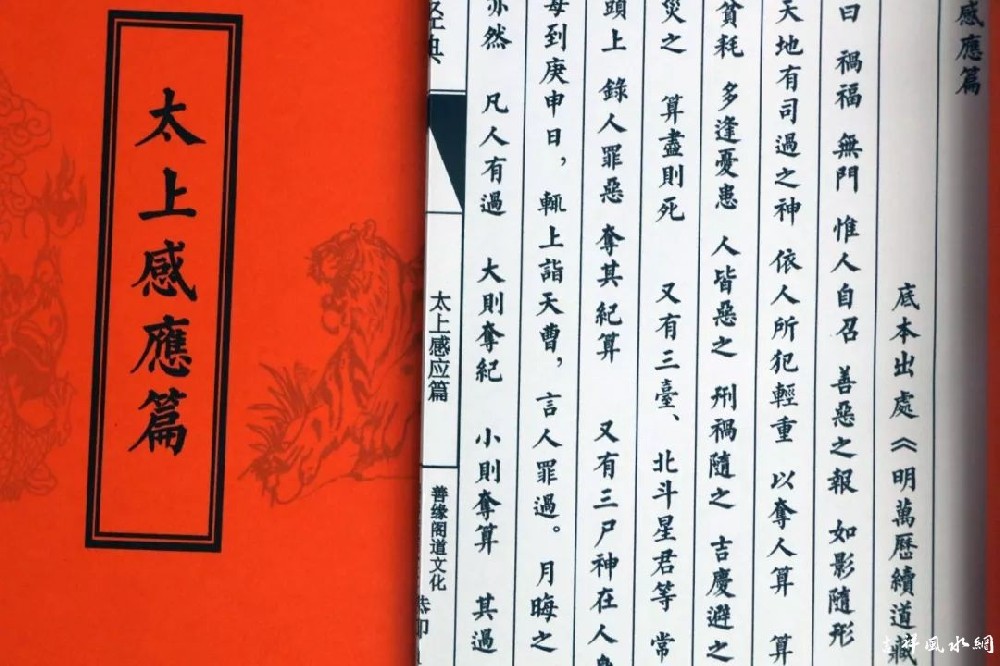 太上感應篇
感應篇
底本出處《明萬曆續道藏
曰 禍福 無門 惟人自召 善惡之報 如影隨形
天地有司過之神 依人所犯輕重 以奪人算 算
貧耗 多逢憂患 人皆惡之 刑禍隨之 吉慶避之
災之 算盡則死 又有三臺、北斗星君等 常
頭上 錄人罪惡 奪其紀算 又有三尸神在人身
每到庚申日，輒上詣天曹，言人罪過。月晦之
亦然 凡人有過 大則奪紀 小則奪算 其過
经典
太上感应篇
善缘阁道文化
恭印
吉祥風水網